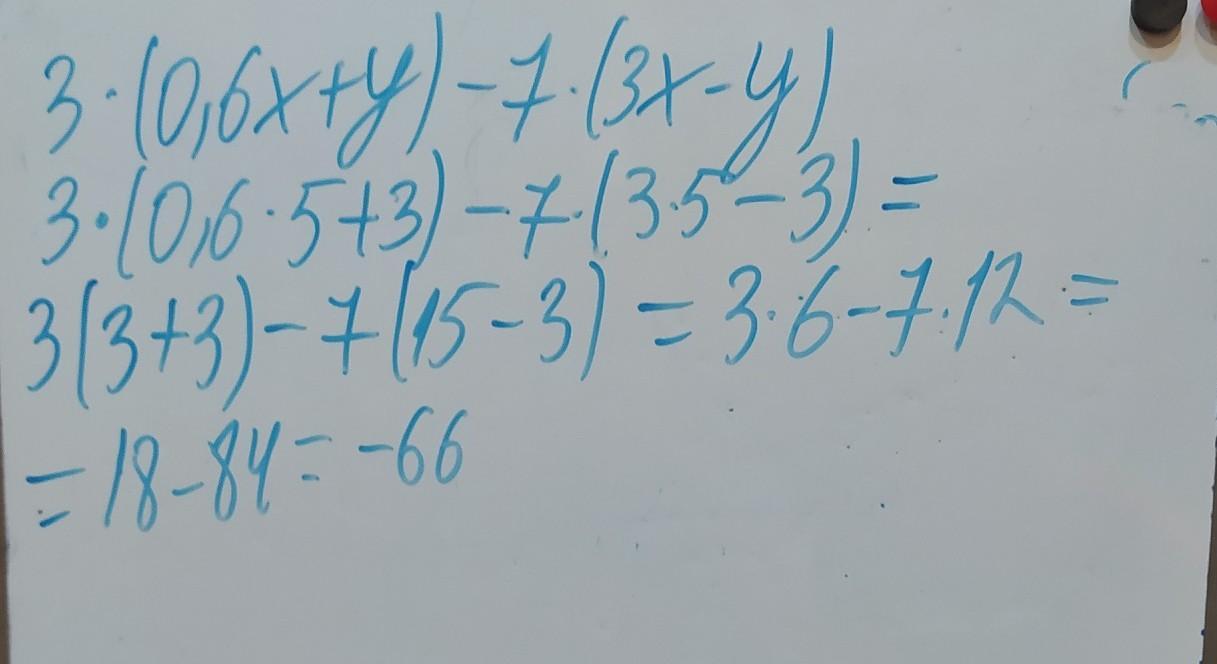 3·(0,6x+y)-7·(3x-y)
3·(0,6·5+3)-7·(3·5-3)=
3(3+3)-7(15-3)=3·6-7·12=
=18-84=-66